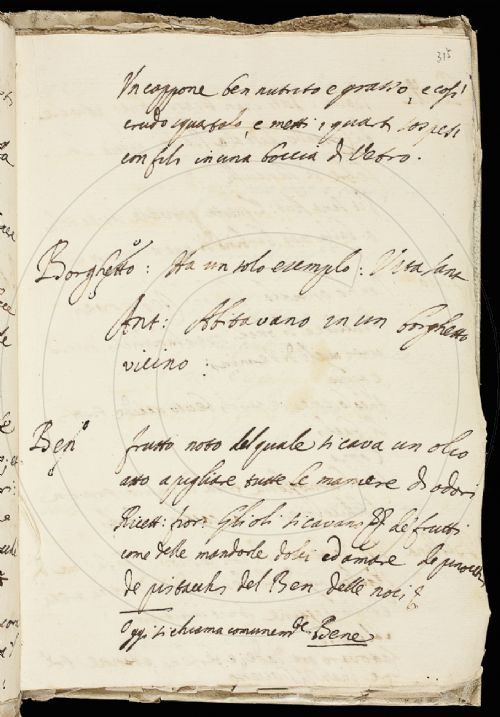 315
Un cappone ben nutrito e grasso, e così
crudo squartalo, e metti i quarti sospesi
con fili in una boccia di Vetro.
Borghetto: Ha un solo esempio: Vita Sant
Ant: Abitavano in un borghetto
vicino:
Ben
frutto noto del quale si cava un olio
atto a pigliare tutte le maniere di odori
Ricett: fior: Gli oli si cavano de frutti
come delle mandorle dolci ed amare de pinocchi
de pistacchi del Ben delle noci &
Oggi si chiama comunem.te Bene